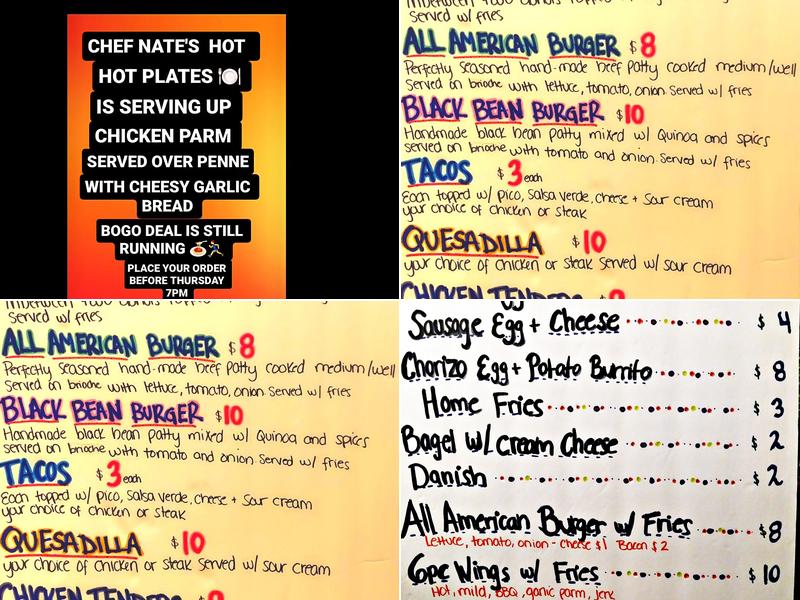 CHEF NATE'S HOT
HOT PLATES 🍽
IS SERVING UP
CHICKEN PARM
SERVED OVER PENNE
WITH CHEESY GARLIC
BREAD
BOGO DEAL IS STILL
RUNNING 🍝🏃
PLACE YOUR ORDER
BEFORE THURSDAY
7PM
Served w/ fries
ALL AMERICAN BURGER $8
Perfectly seasoned hand-made beef patty cooked medium/well
Served on brioche with lettuce, tomato, onion. Served w/ fries
BLACK BEAN BURGER $10
Handmade black bean patty mixed w/ Quinoa and spices
served on brioche with tomato and onion. Served w/ fries
TACOS $3 each
Each topped w/ pico, salsa verde, cheese + Sour cream
your choice of chicken or steak
QUESADILLA $10
your choice of chicken or steak served w/ sour cream
CHICKEN TENDERS
Served w/ fries
ALL AMERICAN BURGER $8
Perfectly seasoned hand-made beef patty cooked medium/well
Served on brioche with lettuce, tomato, onion Served w/ fries
BLACK BEAN BURGER $10
Handmade black bean patty mixed w/ Quinoa and spices
served on brioche with tomato and onion Served w/ fries
TACOS $3 each
Each topped w/ pico, salsa verde, cheese + Sour cream
your choice of chicken or steak
QUESADILLA $10
your choice of chicken or steak served w/ sour cream
CHICKEN TENDERS
Sausage Egg + Cheese $4
Chorizo Egg + Potato Burrito $8
Home Fries $3
Bagel w/ cream Cheese $2
Danish $2
All American Burger w/ Fries $8
Lettuce, tomato, onion - cheese $1 Bacon $2
6pc Wings w/ Fries $10
Hot, mild, BBQ, garlic parm, jerk